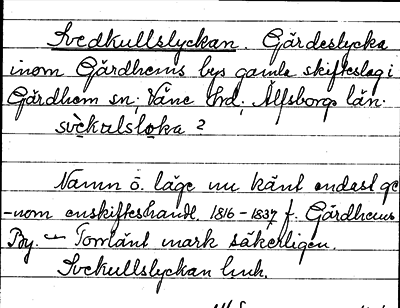 Svedkullslyckan. Gärdeslycka
inom Gärdhems bys gamla skifteslag i
Gärdhem sn; Väne hrd; Älfsborgs län.
svèkulsloka ?
Namn o. läge nu känt endast ge
-nom enskifteshandl. 1816-1837 f. Gärdhems
By. — Tomtänt mark säkerligen.
Svekullslyckan